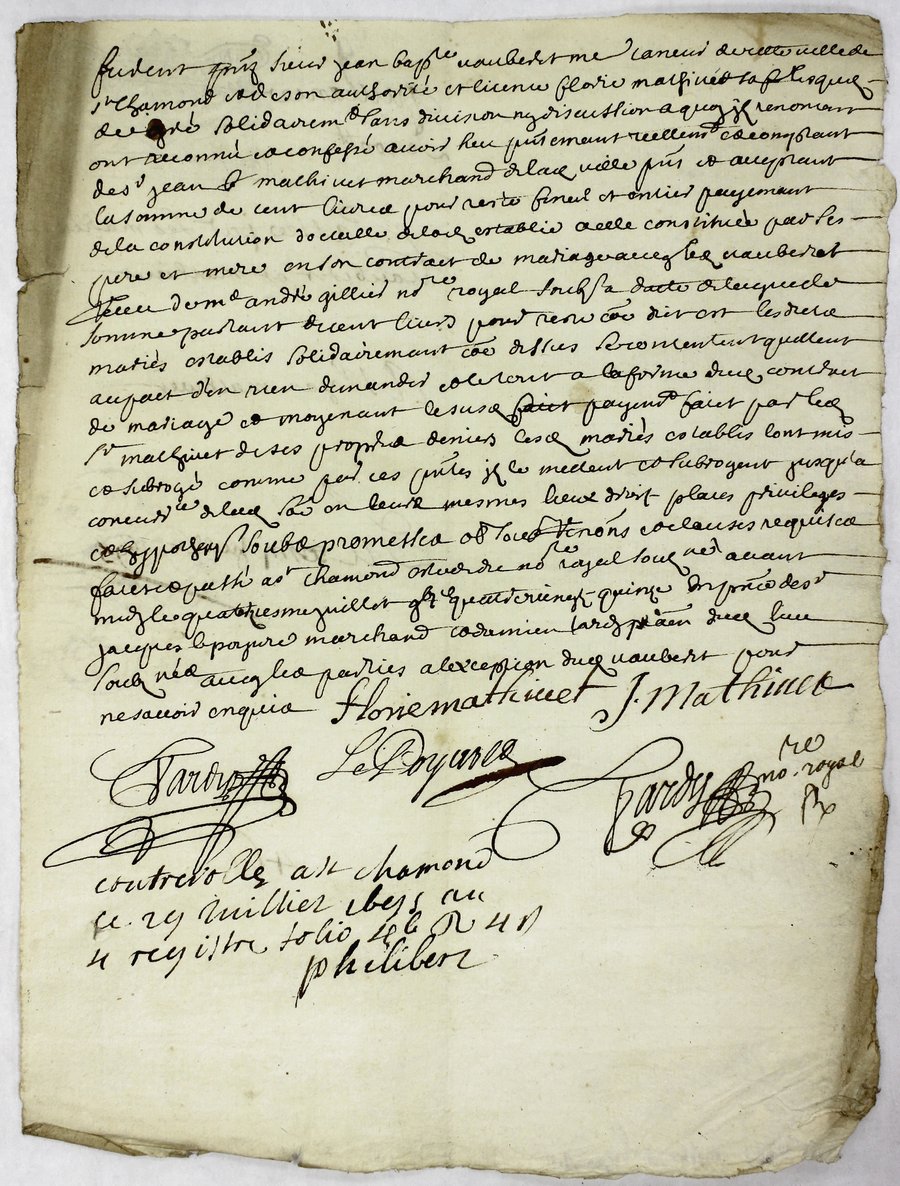 furent pnts sieur jean bapte vauberet me taneur de cette ville de
st chamond et de son authorité et licence florie mathivet sa fe lesquels
de gré solidairemt sans division ny discussion a quoy jls renoncent
ont reconnu et confessé avoir heu pntement reellemt et comptant
de sr jean mathivet marchand de lad ville pnt et acceptant
la somme de cent livres pour reste final et entier payement
de la constitution dotcalle de lad establie a elle constituée par ses
pere et mere en son contract de mariage avec led vauberet
receu de me andré gillier nore royal soubs sa datte de laquelle
somme partant de cent livres pour reste coe dit est lesdits
mariés establis solidairemant coe dessus se contentent quittent
au pact d'en rien demander et le tout a la forme dud contract
de mariage et moyenant le susd fait payemt fait par led
sr mathivet de ses propres deniers lesd mariés establis lont mis
et subrogé comme par ces pntes jls le mettent et subrogent jusqu'a
concurrce de lad soe en leurs mesmes lieux droit places privileges
et hypotheqs soubs promesses ob soub renons et clauses requises
fait et passé a st chamond nore royal soubné avant
midy le quatriesme juillet quatrevingt quinze en pnce de sr
jacques marchand et damien tardy dud lieu
soubnés avec les parties a lexception dud vauberet pour
ne scavoir enquis florie mathivet J. Mathivet
Tardy
Tardy nore royal
controlle a st chamond
ce juillet au
4 registre folio
philibert